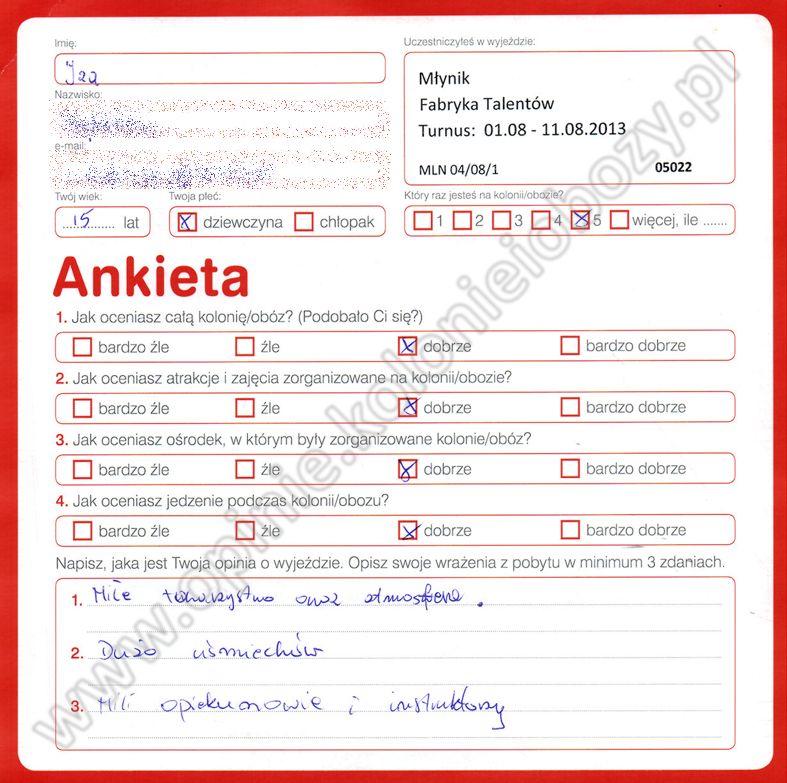 Imię:
Uczestniczyłeś w wyjeździe:
Iza
Młynik
Fabryka Talentów
Turnus: 01.08 - 11.08.2013
MLN 04/08/1 05022
Nazwisko:
e-mail:
Twój wiek: Twoja płeć: Który raz jesteś na kolonii/obozie?
15 lat dziewczyna chłopak 1 2 3 4 5 więcej, ile .......
Ankieta
1. Jak oceniasz całą kolonię/obóz? (Podobało Ci się?)
bardzo źle źle dobrze bardzo dobrze
2. Jak oceniasz atrakcje i zajęcia zorganizowane na kolonii/obozie?
bardzo źle źle dobrze bardzo dobrze
3. Jak oceniasz ośrodek, w którym były zorganizowane kolonie/obóz?
bardzo źle źle dobrze bardzo dobrze
4. Jak oceniasz jedzenie podczas kolonii/obozu?
bardzo źle źle dobrze bardzo dobrze
Napisz, jaka jest Twoja opinia o wyjeździe. Opisz swoje wrażenia z pobytu w minimum 3 zdaniach.
1. Miłe towarzystwo oraz atmosfera.
2. Dużo uśmiechów
3. Mili opiekunowie i instruktorzy
www.opinie.kolonieiobozy.pl